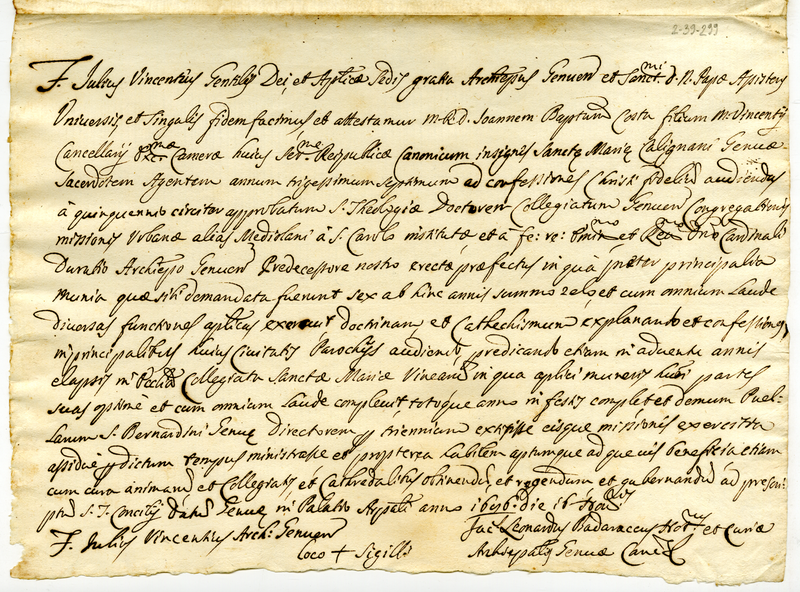 2-39-299
F. Julius Vincentius Gentilis Dei, et Aplicæ Sedis gratia Archiepus Genuen et Sanct.mi d. N. Papæ Assistens
Universis et Singulis fidem facimus et attestamur m. R. d. Joannem Baptam Costa filium m. Vincentij
Cancellarij Exc.mæ Cameræ huius Ser.me Reipublicæ Canonicum insignis Sanctæ Mariæ Calignani Genuæ
Sacerdotem Agentem annum trigessimum septimum ad confessiones Christi fidelium audiendas
à quinquennio circiter approbatum S. Theologiæ Doctorem Collegiatum Genuen Congregationis
missionis Urbanæ alias Mediolani à S. Carolo institutæ et à fe: re: Emin.mo et Rev.mo Dno Cardinali
Duratio Archiepo Genuen Predecessore nostro erectæ præfectus in qua præter principalia
munia quæ sibi demandata fuerunt sex ab hinc annis summo zelo et cum omnium Laude
diversas functiones aplicas exercuit doctrinam et Cathechismum explanando et confessiones
in principalibus huius Civitatis Parochijs audiendo, predicando etiam in adventu annis
elapsis in Collegiata Sanctæ Mariæ Vinearum in qua aplici muneris partes
suas optimè et cum omnium Laude complevit totoque anno in festis complet et domum Puel-
larum S. Bernardini Genuæ Directorem p triennium extitisse eisque missionis exercitia
assiduè p dictum tempus ministrasse et propterea habilem aptumque ad quævis beneficia etiam
cum cura animarum et Collegiatis et Cathedralibus obtinendum et regendum et gubernandum ad prescri-
ptum S. T. Concilij datum Genuæ in Palatio Archiepali anno 1696. die 16
F. Julius Vincentius Arch. Genuen
Jac. Leonardus Badaraccus Not.us et Curiæ
Loco + Sigilli
Archiepalis Genuæ Canc.